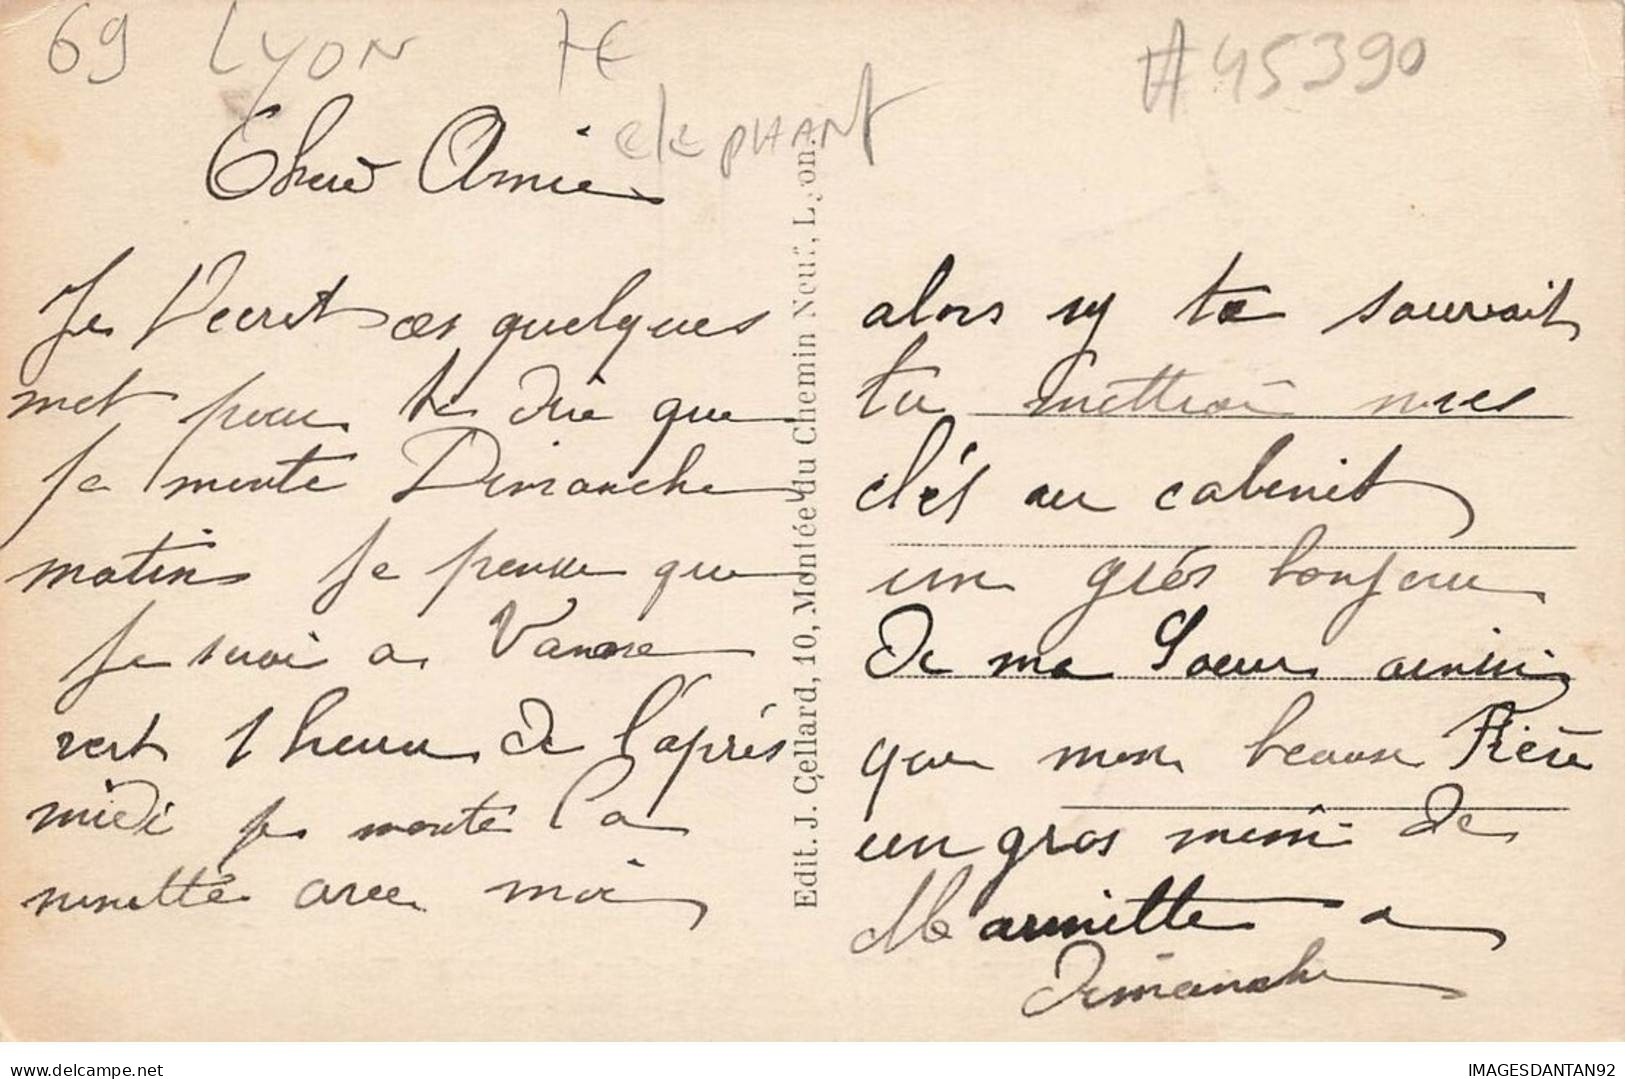 69 Lyon 7E
elephant
#45390
Cher Amie
Je Vecrit ces quelques
met pour te dire que
Je monte Dimanche
matin Je pense que
Je serai a
vert 1 heure de l'après
midi je monte la
minette avec moi
Edit. J. Cellard, 10, Montée du Chemin Neuf, Lyon.
alors sy te souvait
tu mettrai mes
clés au cabinit
un gros bonjour
De ma Soeur ainsi
que mon beaux Frère
un gros mimi de
Marinette a
Dimanche
delcampe.net
IMAGESDANTAN92